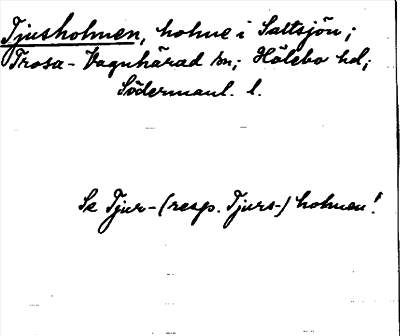 Tjusholmen, holme i Saltsjön;
Trosa-Vagnhärad sn; Hölebo hd;
Södermanl. l.
Se Tjur-(resp. Tjurs-)holmen!